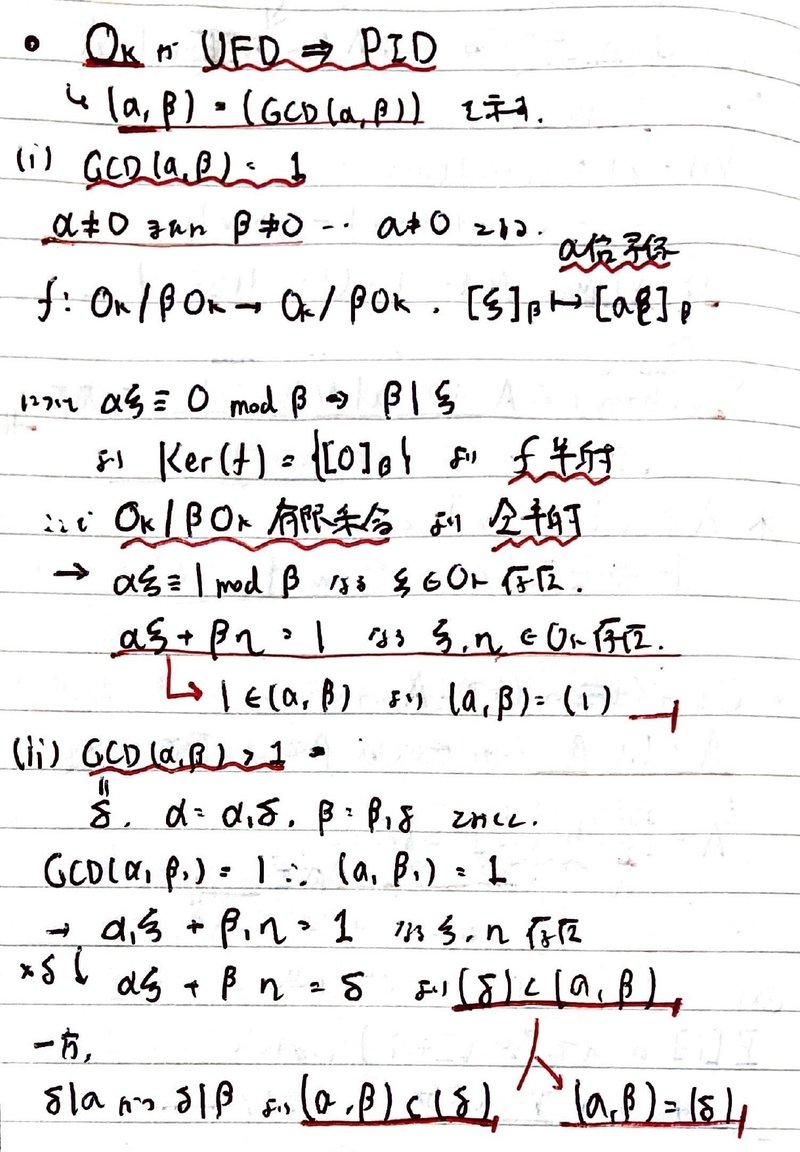 • OK が UFD ⇒ PID
↳ (α, β) = (GCD(α, β)) を示す.
(i) GCD(α, β) = 1
α≠0 または β≠0 ‥ α≠0 とする.
α倍写像
f: OK/βOK → OK/βOK . [ξ]β ↦ [αξ]β
について αξ ≡ 0 mod β ⇒ β|ξ
より Ker(f) = {[0]β} より f 単射
ここで OK/βOK 有限集合 より 全単射
→ αξ ≡ 1 mod β なる ξ ∈ OK 存在.
αξ + βη = 1 なる ξ, η ∈ OK 存在.
↳ 1 ∈ (α, β) より (α, β) = (1)
(ii) GCD(α, β) > 1
= δ. α = α1δ. β = β1δ とおくと.
GCD(α1 β1) = 1 ∴ (α1 β1) = 1
→ α1ξ + β1η = 1 なる ξ, η 存在
×δ ↓ αξ + βη = δ より (δ) ⊂ (α, β)
一方,
δ|α かつ δ|β より (α, β) ⊂ (δ) (α, β) = (δ)